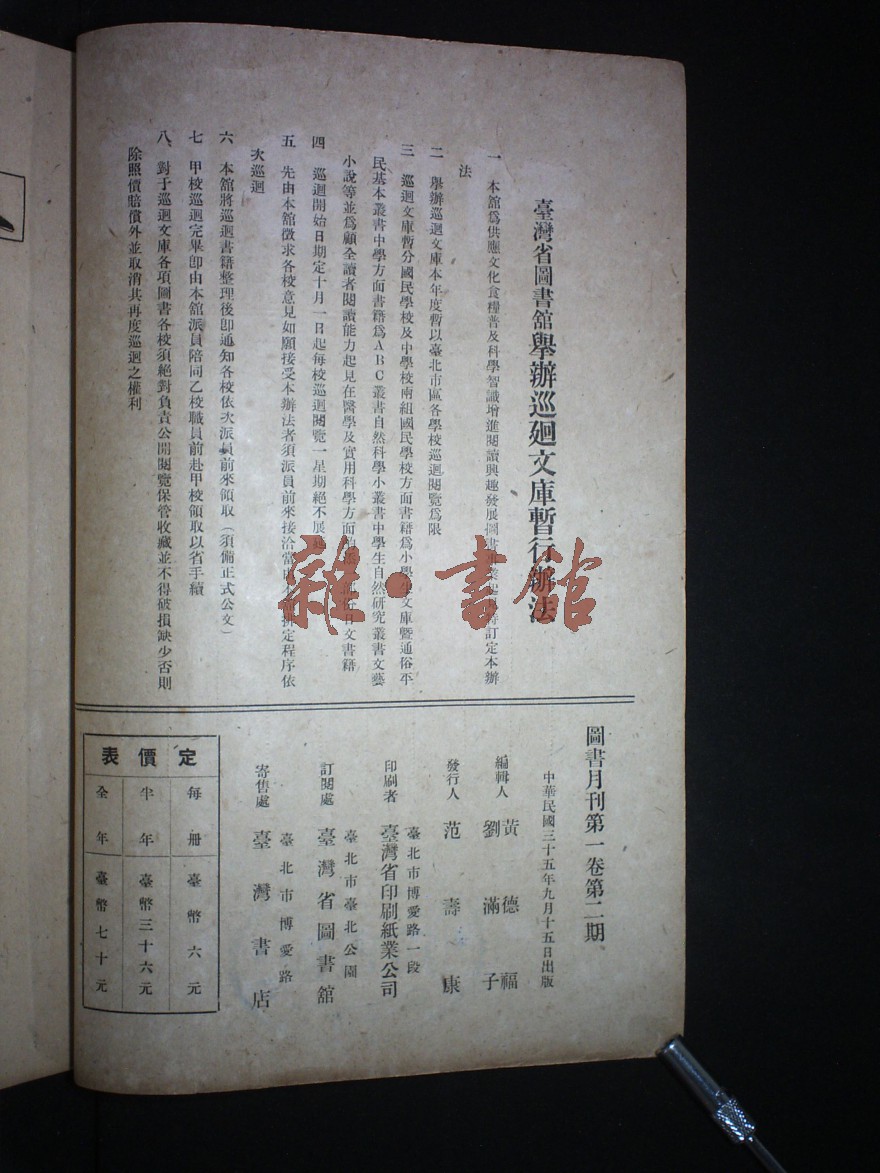 臺灣省圖書舘舉辦巡廻文庫暫行辦法
一 本舘爲供應文化食糧普及科學智識增進閱讀興趣發展圖書事業起見特訂定本辦
法
二 舉辦巡迴文庫本年度暫以臺北市區各學校巡迴閱覽爲限
三 巡迴文庫暫分國民學校及中學校兩組國民學校方面書籍爲小學生文庫暨通俗平
民基本叢書中學方面書籍爲ABC叢書自然科學小叢書中學生自然研究叢書文藝
小說等並爲顧全讀者閱讀能力起見在醫學及實用科學方面 日文書籍
四 巡迴開始日期定十月一日起每校巡迴閱覽一星期絕不展
五 先由本舘徵求各校意見如願接受本辦法者須派員前來接洽當 排定程序依
次巡迴
六 本舘將巡迴書籍整理後卽通知各校依次派員前來領取（須備正式公文）
七 甲校巡迴完畢卽由本舘派員陪同乙校職員前赴甲校領取以省手續
八 對于巡迴文庫各項圖書各校須絕對負責公開閱覽保管收藏並不得破損缺少否則
除照價賠償外並取消其再度巡迴之權利
雜·書舘
圖書月刊第一卷第二期
中華民國三十五年九月十五日出版
編輯人 黃德福
劉滿子
發行人 范壽康
臺北市博愛路一段
印刷者 臺灣省印刷紙業公司
臺北市臺北公園
訂閱處 臺灣省圖書舘
臺北市博愛路
寄售處 臺灣書店
定價表
每册 臺幣六元
半年 臺幣三十六元
全年 臺幣七十元